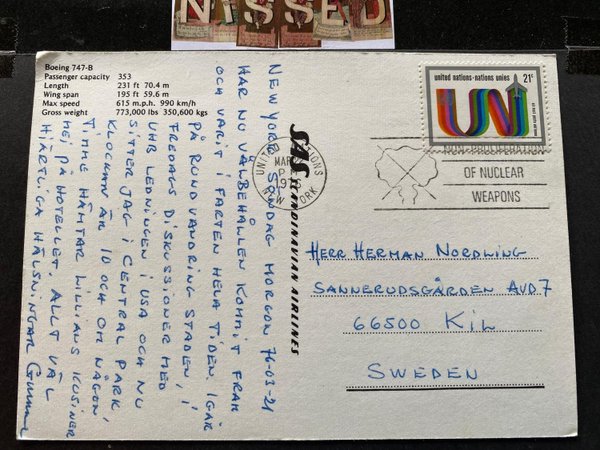 NISSED
Boeing 747-B
Passenger capacity 353
Length 231 ft 70.4 m
Wing span 195 ft 59.6 m
Max speed 615 m.p.h. 990 km/h
Gross weight 773,000 lbs 350,600 kgs
NEW YORK SÖNDAG MORGON 76-03-21
HAR NU VÄLBEHÅLLEN KOMMIT FRAM
OCH VARIT I FARTEN HELA TIDEN. IGÅR
PÅ RUNDVANDRING STADEN, I
FREDAGS DISKUSSIONER MED
UHR LEDNINGEN I USA OCH NU
SITTER JAG I CENTRAL PARK,
KLOCKAN ÄR 10 OCH OM NÅGON
TIMME HÄMTAR WILLIAMS KUSINER
MEJ PÅ HOTELLET. ALLT VÄL
HJÄRTLIGA HÄLSNINGAR
SAS SCANDINAVIAN AIRLINES
UNITED NATIONS
MAR
NEW YORK
united nations-nations unies 21c
UN
NON-PROLIFERATION
OF NUCLEAR
WEAPONS
HERR HERMAN NORDLING
SANNERUDSGÅRDEN AVD 7
66500 KIL
SWEDEN